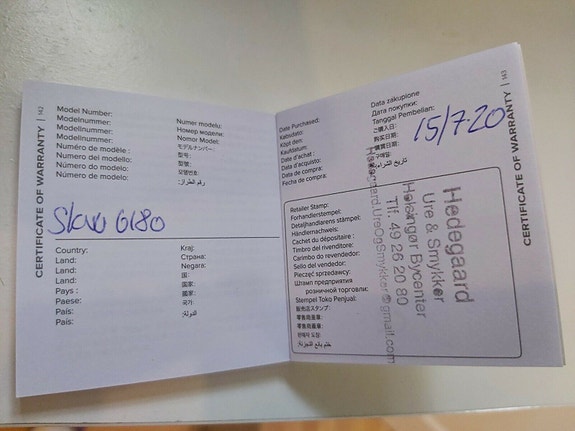 CERTIFICATE OF WARRANTY | 142
Model Number:
Modelnummer:
Modellnummer:
Modellnummer:
Numéro de modèle :
Numero del modello:
Número de modelo:
Número do modelo:
Numer modelu:
Номер модели:
Nomor Model:
モデルナンバー:
型号:
型號:
모델번호:
رقم الطراز:
SKW 6180
Country:
Land:
Land:
Land:
Pays :
Paese:
País:
País:
Kraj:
Страна:
Negara:
国:
国家:
國家:
국가:
الدولة:
CERTIFICATE OF WARRANTY | 143
Date Purchased:
Købsdato:
Köpt den:
Kaufdatum:
Date d'achat :
Data d'acquisto:
Data de compra:
Fecha de compra:
Data zakupione
Дата покупки:
Tanggal Pembelian:
ご購入日:
购买日期:
購買日期:
구매일:
تاريخ الشراء:
15/7-20
Retailer Stamp:
Forhandlerstempel:
Detaljhandlarens stämpel:
Händlernachweis:
Cachet du dépositaire :
Timbro del rivenditore:
Carimbo do revendedor:
Sello del vendedor:
Pieczęć sprzedawcy:
Штамп предприятия
розничной торговли:
Stempel Toko Penjual:
販売店スタンプ:
零售商盖章:
零售商蓋章:
판매자 도장:
ختم بائع التجزئة:
Hedegaard
Ure & Smykker
Helsingør Bycenter
Tlf. 49 26 20 80
Hedegaard.UreOgSmykker@gmail.com